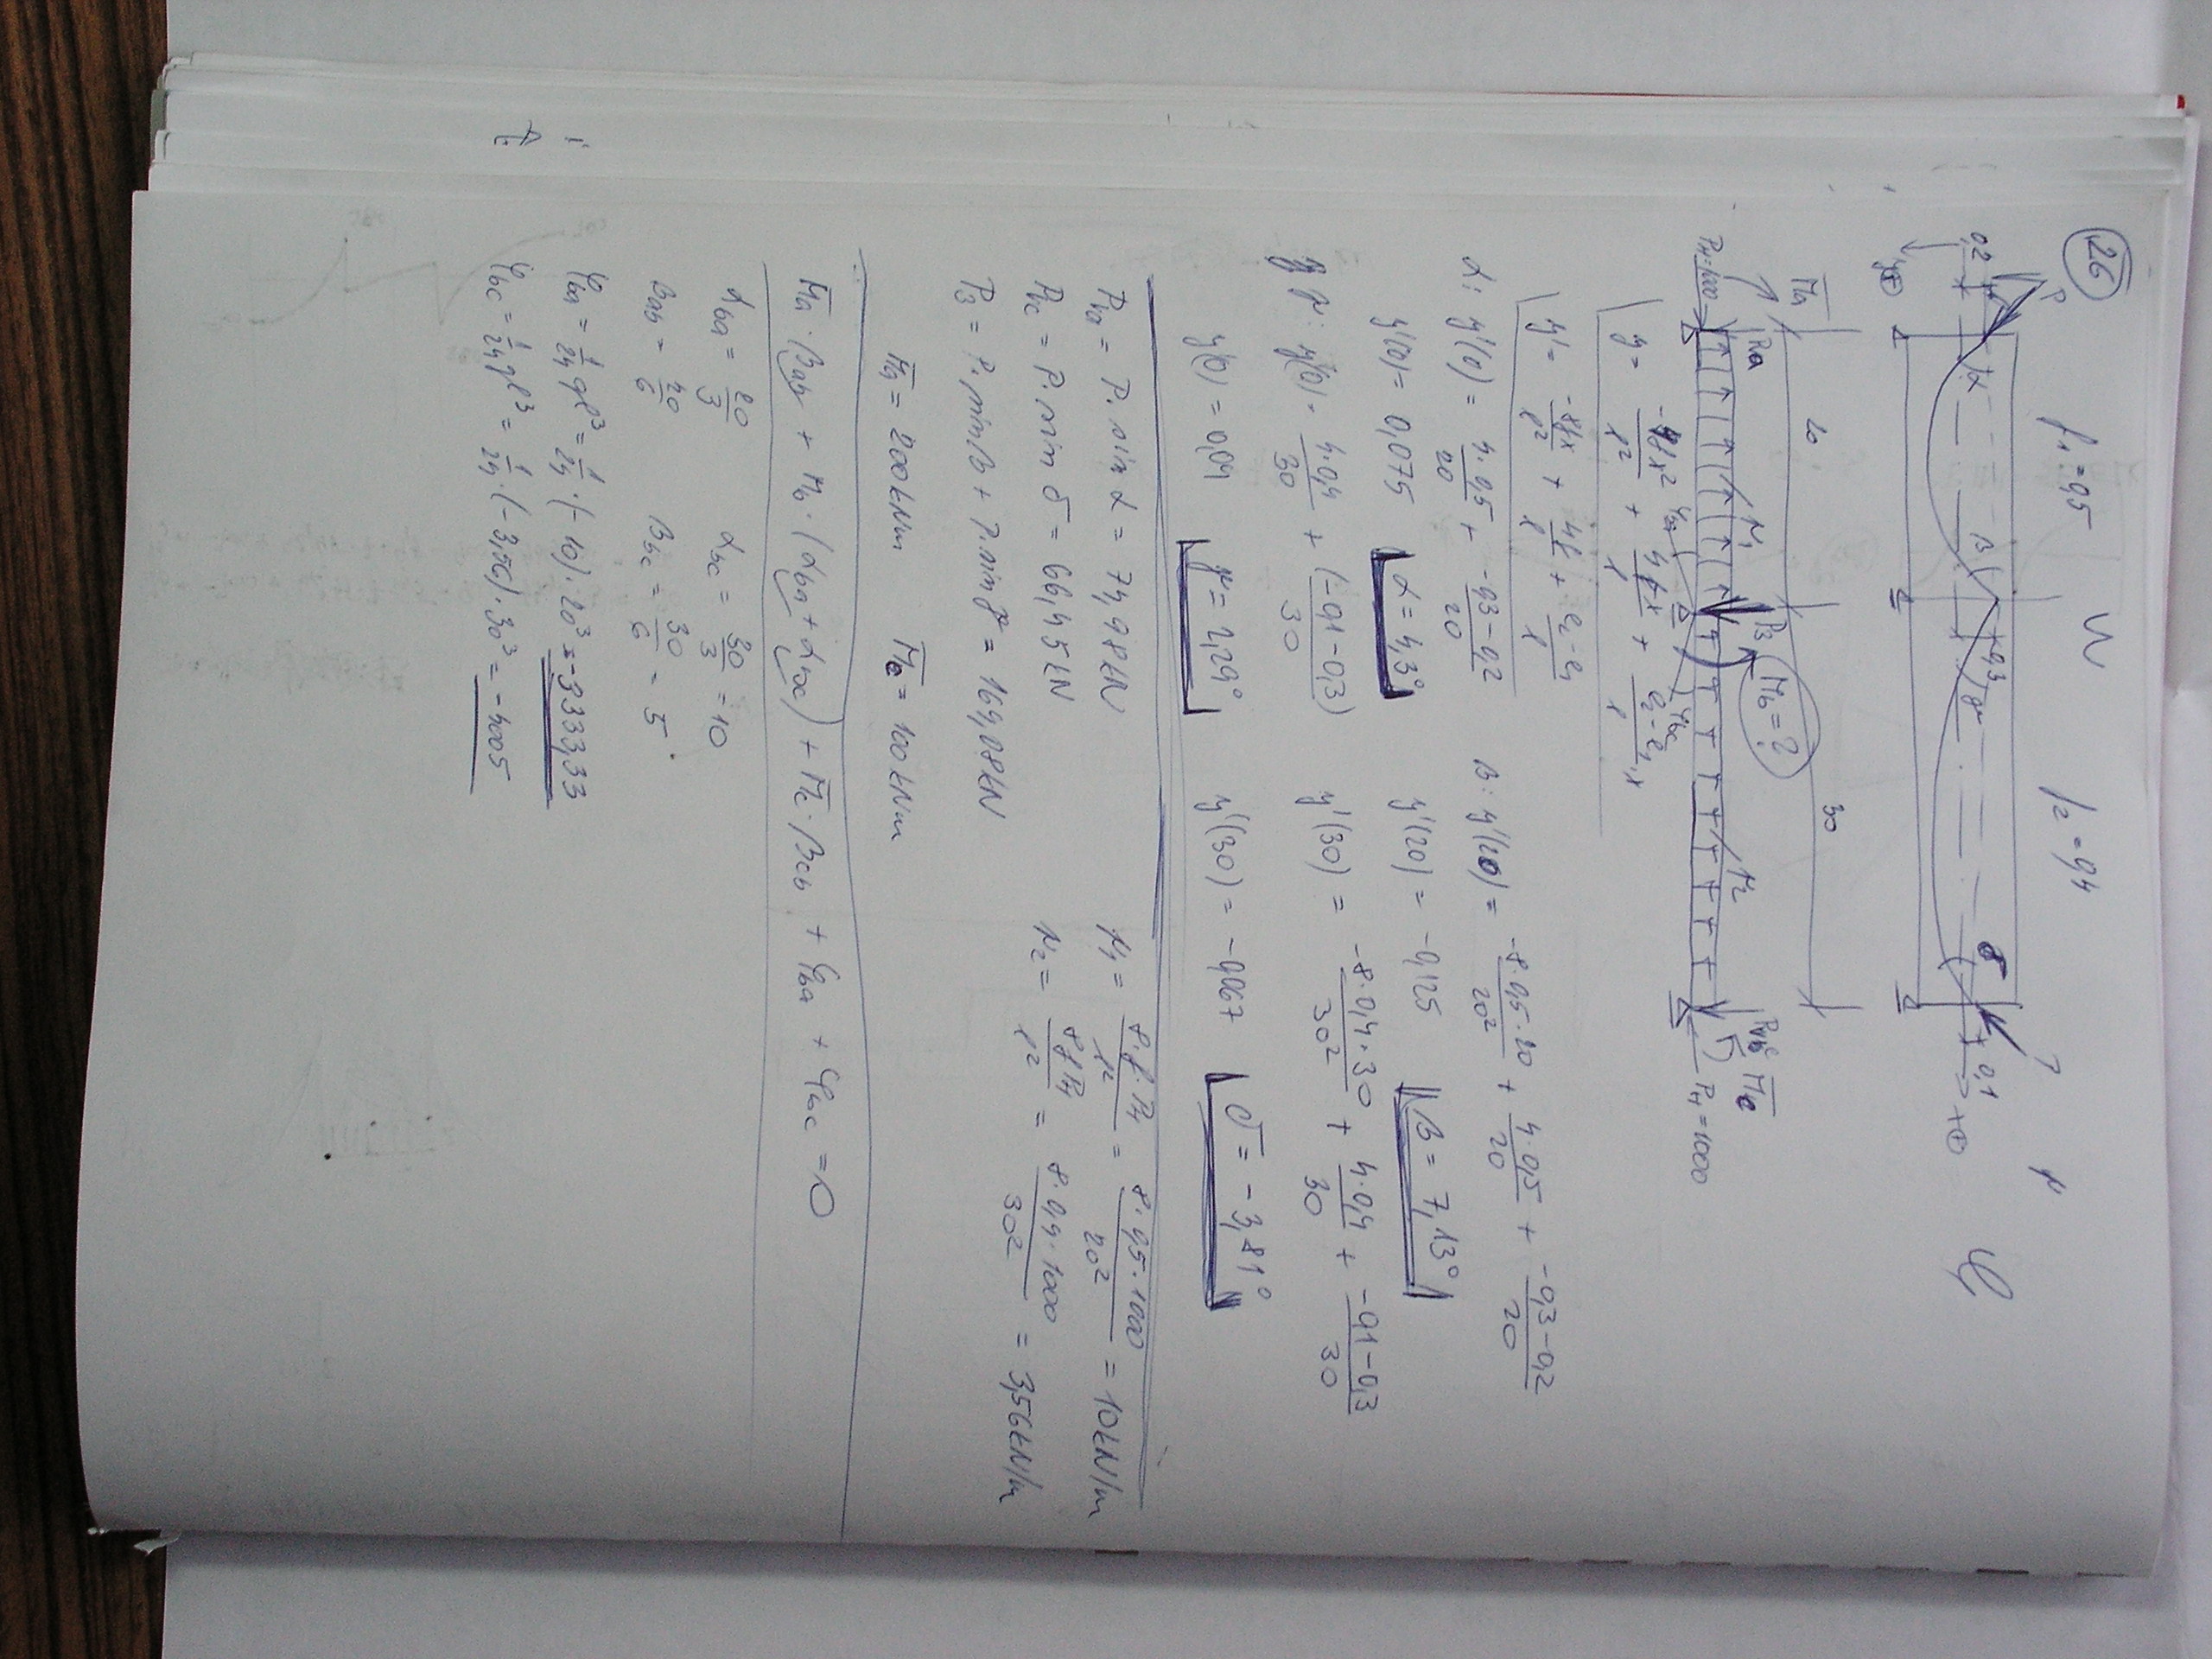 26
f₁=0,5 f₂=0,4
P
0,2 α β 0,3 γ δ 0,1
20 30
M̄a Ra p₁ P3 Mb=? p₂ M̄c
PH=1000 φba φbc PH=1000
y = -4fx²/l² + 4fx/l + e₂-e₁/l ·x
y' = -8fx/l² + 4f/l + e₂-e₁/l
α: y'(0) = 4·0,5/20 + -0,3-0,2/20 β: y'(20) = -8·0,5·20/20² + 4·0,5/20 + -0,3-0,2/20
y'(0) = 0,075 α = 4,3° y'(20) = -0,125 β = 7,13°
γ: y'(0) = 4·0,4/30 + (-0,1-0,3)/30 y'(30) = -8·0,4·30/30² + 4·0,4/30 + -0,1-0,3/30
y'(0) = 0,04 γ = 2,29° y'(30) = -0,067 δ = -3,81°
Pva = P·sin α = 74,98kN p₁ = 8·f·PH/l² = 8·0,5·1000/20² = 10kN/m
Pvc = P·sin δ = 66,45kN p₂ = 8fPH/l² = 8·0,4·1000/30² = 3,56kN/m
P3 = P·sinβ + P·sinγ = 164,08kN
M̄a = 200kNm M̄c = 100kNm
M̄a·βab + Mb·(αba+αbc) + M̄c·βcb + φba + φbc = 0
αba = 20/3 αbc = 30/3 = 10
βab = 20/6 βbc = 30/6 = 5
φba = 1/24 ql³ = 1/24·(-10)·20³ = -3333,33
φbc = 1/24 ql³ = 1/24·(-3,56)·30³ = -4005